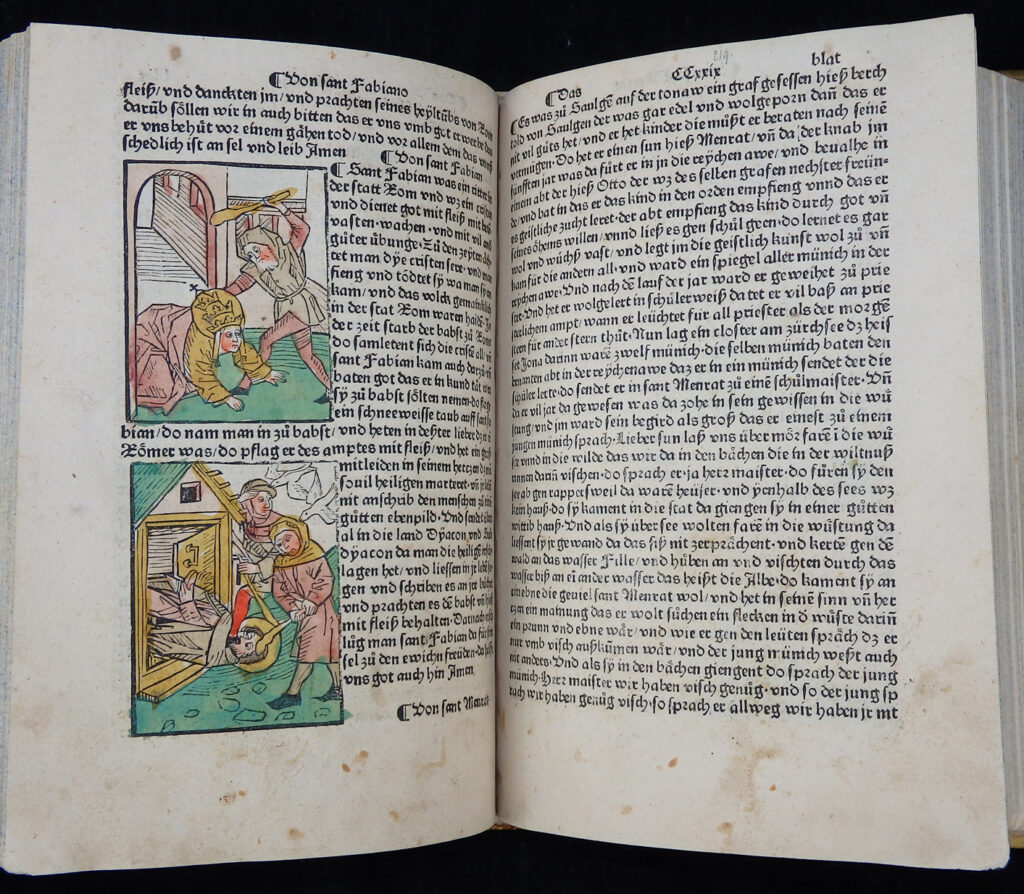 ¶Von sant Fabiano
fleiß/vnd danckten jm/vnd prachten seines heyltůbs von Rom
darüb söllen wir in auch bitten das er vns vmb got erwerbe das
er vns behůt vor einem gähen tod/vnd vor allem dem das vnß
schedlich ist an sel vnd leib Amen
¶Von sant Fabian
¶Sant Fabian was ein ritter in
der statt Rom vnd wz ein cristen
vnd dienet got mit fleiß mit
vasten·wachen·vnd mit vil and
gůter übunge·Zů den zeyten
tet man dye cristen sere·vnd man
fieng vnd tödtet sy wa man sy an
kam/vnd das volck gemainklich
in der stat Rom waren haiden
der zeit starb der babst zů Rom
do samleten sich die cristē all·vnd
sant Fabian kam auch darzů vñ
baten got das er in kund tät wen
sy zů babst sölten nemen·do flog
ein schneeweisse taub auff sant fa
bian/do nam man in zů babst/vnd heten in dester lieber dz er ein
Römer was/do pflag er des amptes mit fleiß/vnd het ein groß
mitleiden in seinem hertzen dz man
souil heiligen marteret·vnd
mit anschüb den menschen zů einē
gůtten ebenpild·Vnd sendet über
al in die land Dyacon vnd Sub
dyacon da man die heiligē erschlagen
lagen het/vnd liessen in je leben
gen vnd schriben es an jre bücher
vnd prachten es dē babst vñ hieß
mit fleiß behalten·Darnach
lůg man sant Fabian da fůr sein
sel zů den ewichn freüden·da helff
vns got auch hin Amen
¶Von sant Menrat
219
¶Das
CCxxix
blat
¶Es was zů Saulgē auf der tonaw ein graf gesessen hieß berch
told von Saulgen der was gar edel vnd wolgeporn dañ das er
nit vil gůts het/vnd er het kinder die můßt er beraten nach seinē
vermügen·Do het er einen sun hieß Menrat/vñ da der knab jm
fünfften jar was da fürt er in in die reychen awe/vnd beualhe in
einem abt der hieß Otto der wz des selben grafen nechster freün-
de·vnd bat in das er das kind in den orden empfieng vnnd das er
es geistliche zucht leret·der abt empfieng das kind durch got vñ
seines öhems willen/vnnd ließ es gen schůl geen·do lernet es gar
wol vnd wůchß vast/vnd legt jm die geistlich kunst wol zů vñ
kam für die andern all·vnd ward ein spiegel aller münich in der
reychen awe·Vnd nach dē lauf der jar ward er geweihet zů prie
ster·Vnd het er wolgelert in schüler weiß da tet er vil baß an prie
sterlichem ampt/wann er leüchtet für all priester als der morgē
stern für ander stern thůt·Nun lag ein closter am zürchsee dz heis
set Jona darinn warē zwelf münich·die selben münich baten den
benanten abt in der reychenawe daz er in ein münich sendet der die
schüler lerte·do sendet er in sant Menrat zů einē schůlmaister·Vñ
da er vil jar da gewesen was da zohe in sein gewissen in die wů
stung/vnd jm ward sein begird als groß das er einest zů einem
jungen münich sprach·Lieber sun laß vns über mör farē ī die wů
ste vnnd in die wilde das wir da in den bächen die in der wiltnuß
rinnen darinn vischen·do sprach er·ja herr maister·do fůren sy den
see ab gen rappersweil da warē heüser·vnd yenhalb des sees wz
kein hauß·do sy kament in die stat da giengen sy in einer gůtten
wittib hauß·Vnd als sy über see wolten farē in die wůstung da
liessent sy jr gewand da das siß nit zerprächent·vnd kertē gen dē
wald an das wasser Fille/vnd hůben an vnd vischten durch das
wasser biß an eī ander wasser das heißt die Albe·do kament sy an
ein ebne die geuiel sant Menrat wol/vnd het in seinē sinn vñ her
tzen ein mainung das er wolt sůchen ein flecken in d wůste darin
ein prunn vnd ebne wär/vnd wie er gen den leüten spräch dz er
nur vmb visch außkůmen wät/vnd der jung münich weßt auch
nit anders·Vnd als sy in den bächen giengent do sprach der jung
münich·Herr maister wir haben visch genůg·vnd so der jung sp
rach wir haben genůg visch·so sprach er allweg wir haben jr nit